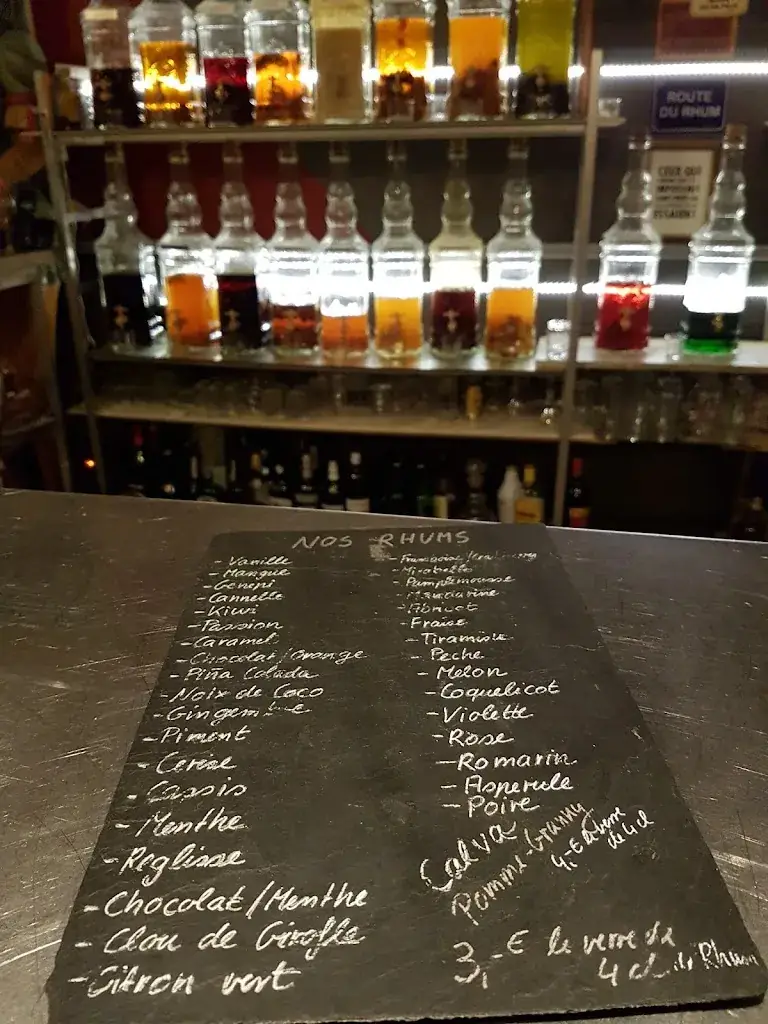 ROUTE
DU RHUM
CEUX QUI
NOS RHUMS
- Vanille
- Mangue
- Genepi
- Cannelle
- Kiwi
- Passion
- Caramel
- Chocolat/Orange
- Piña Colada
- Noix de Coco
- Gingembre
- Piment
- Cerise
- Cassis
- Menthe
- Reglisse
- Chocolat/Menthe
- Clou de Girofle
- Citron vert
- Framboise/
- Mirabelle
- Pamplemousse
- Mandarine
- Abricot
- Fraise
- Tiramisu
- Peche
- Melon
- Coquelicot
- Violette
- Rose
- Romarin
- Asperule
- Poire
Calva
Pomme-Granny
4,-€ le verre
de 4 cl
3,-€ le verre de
4 cl de Rhum